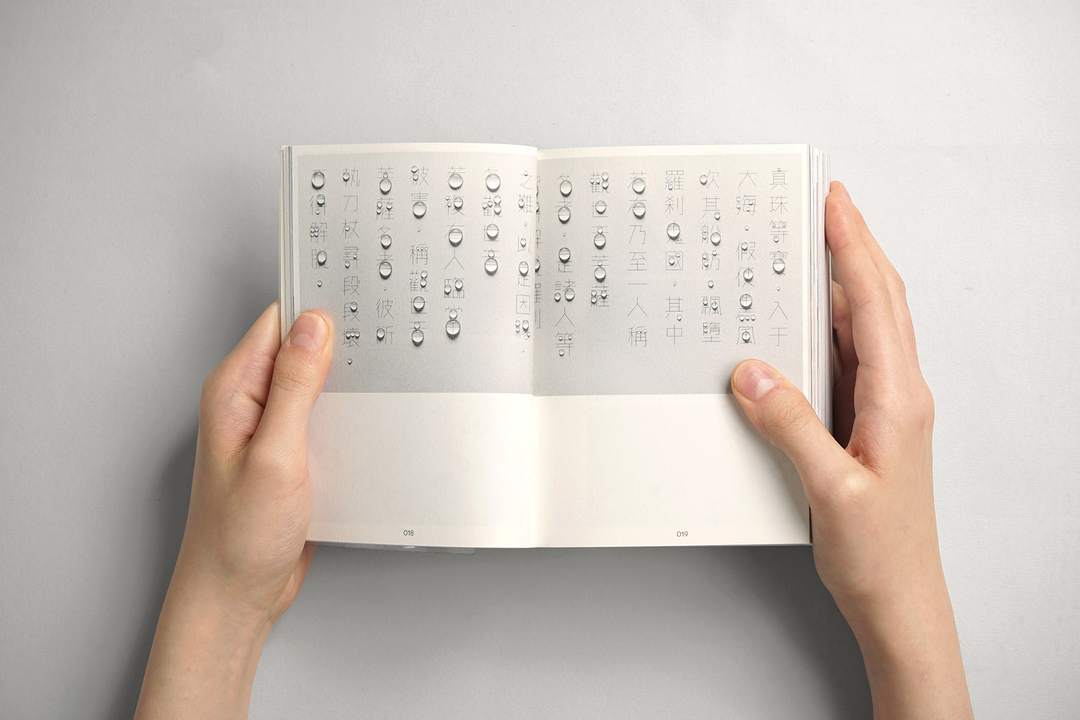 真珠等寶,入于
大海,假使黑風
吹其船舫,飄墮
羅刹鬼國,其中
若有乃至一人稱
觀世音菩薩
名者,是諸人等
解脫羅刹
之難。以是因緣
名觀世音
若復有人臨當
被害,稱觀世音
菩薩名者,彼所
執刀杖尋段段壞,
而得解脫。
018
019